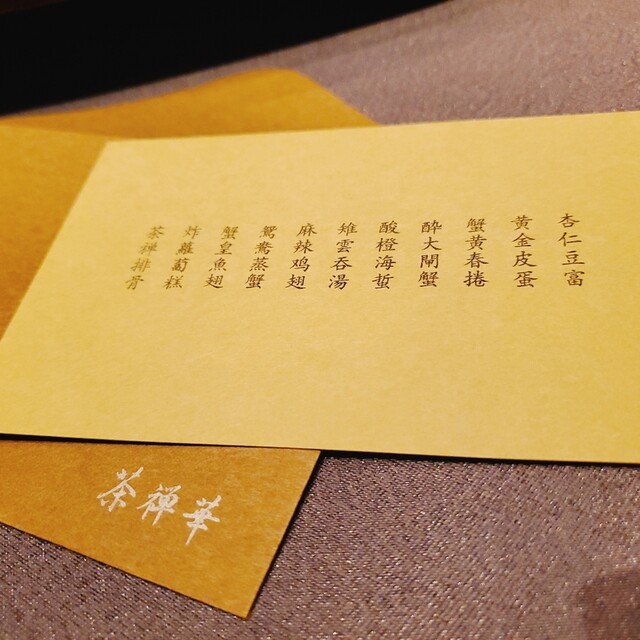 杏仁豆富
黄金皮蛋
蟹黄春捲
酔大閘蟹
酸橙海蜇
雉雲吞湯
麻辣鸡翅
鴛鴦蒸蟹
蟹皇魚翅
炸蘿蔔糕
茶禅排骨
茶禅華